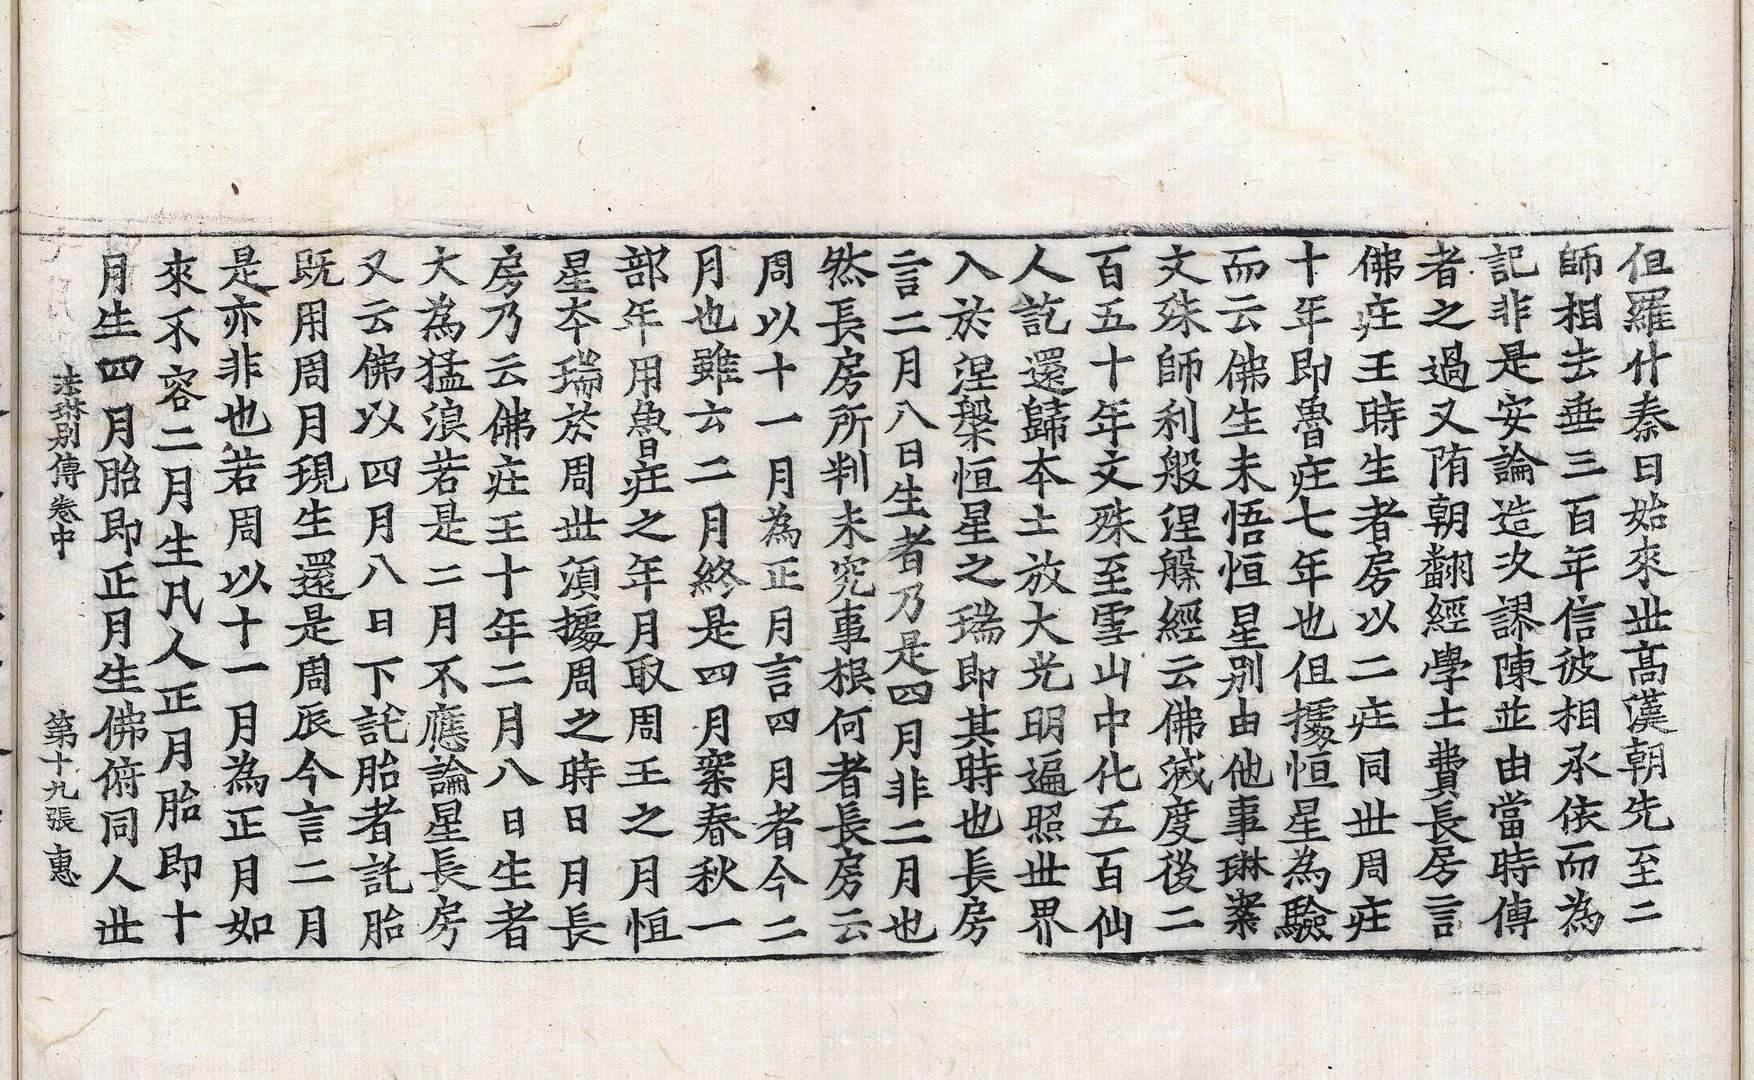 但羅什秦日始來丗髙漢朝先至二
師相去垂三百年信彼相承依而為
記非是安論造次謬陳並由當時傳
者之過又隋朝翻經學士費長房言
佛莊王時生者房以二莊同丗周莊
十年即魯莊七年也但據恒星為驗
而云佛生未悟恒星别由他事琳案
文殊師利般涅槃經云佛滅度後二
百五十年文殊至雪山中化五百仙
人訖還歸本土放大光明遍照丗界
入於涅槃恒星之瑞即其時也長房
言二月八日生者乃是四月非二月也
然長房所判未究事根何者長房云
周以十一月為正月言四月者今二
月也雖云二月終是四月案春秋一
部年用魯莊之年月取周王之月恒
星夲瑞於周丗須據周之時日月長
房乃云佛莊王十年二月八日生者
大為猛浪若是二月不應論星長房
又云佛以四月八日下託胎者託胎
既用周月現生還是周辰今言二月
是亦非也若周以十一月為正月如
來不容二月生凡人正月胎即十
月生四月胎即正月生佛俯同人丗
法琳别傳卷中　第十九張　惠